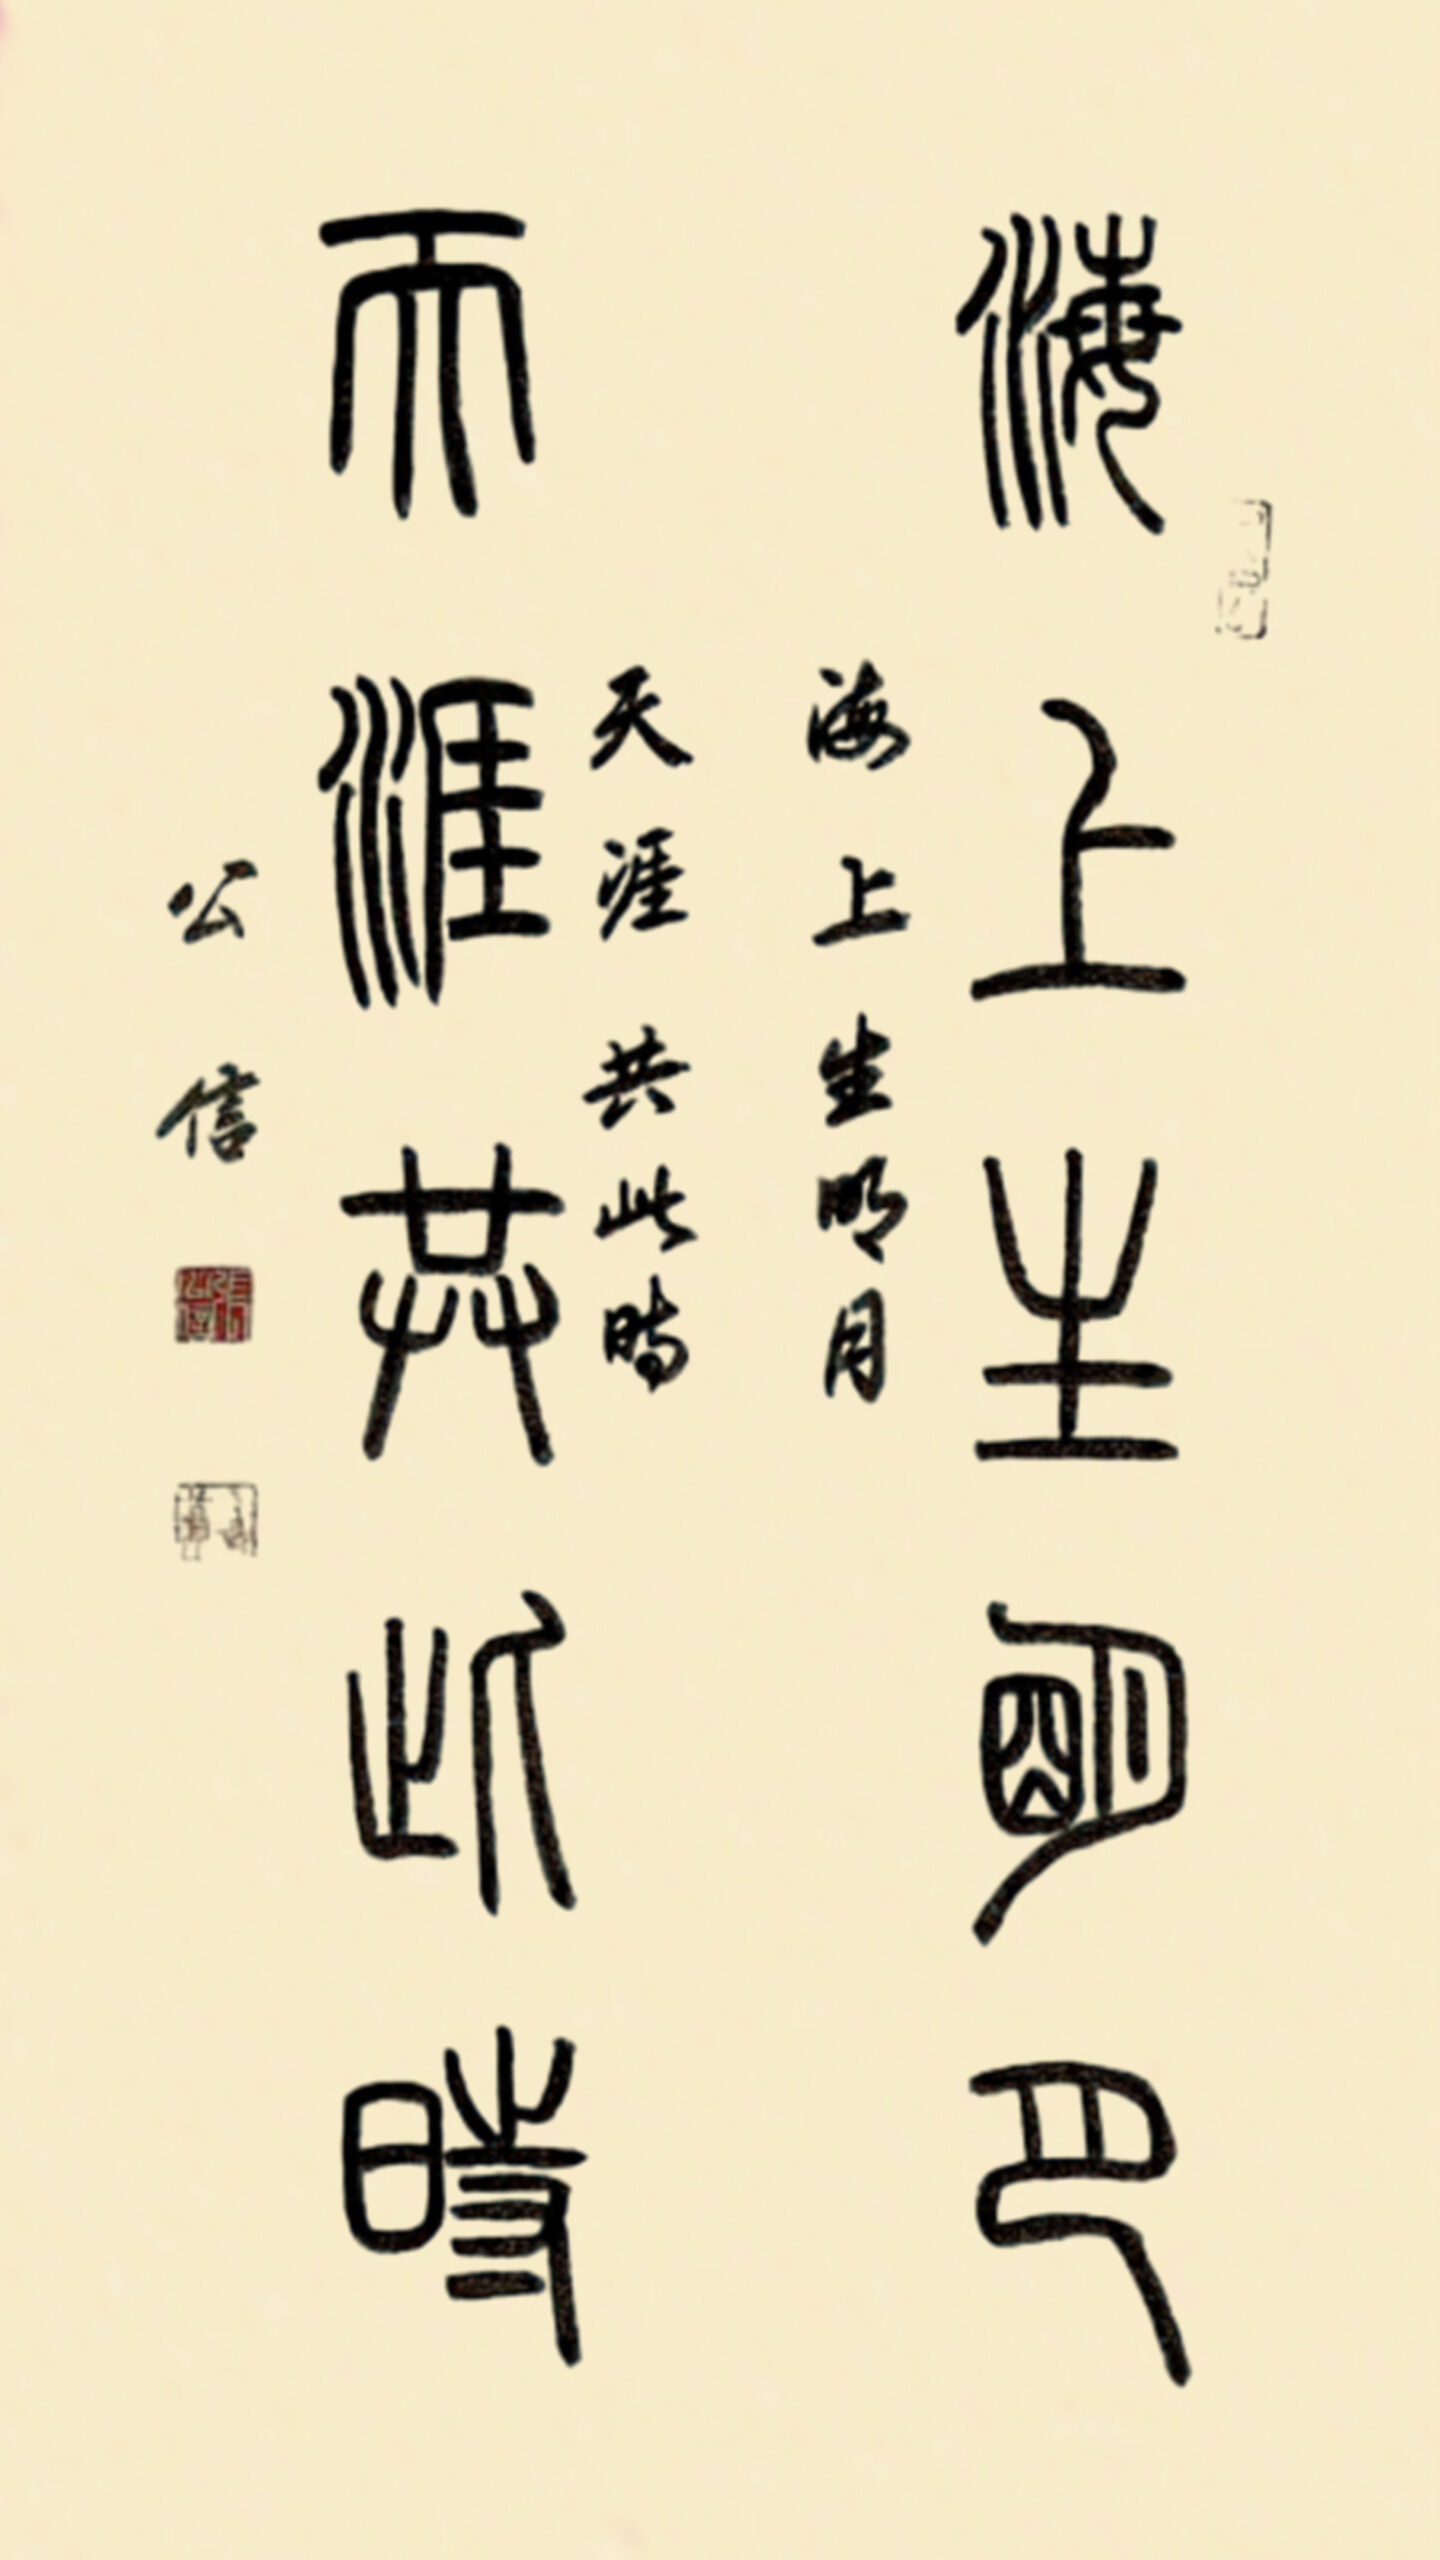 海上生明月
海上生明月
天涯共此時
天涯共此時
公信